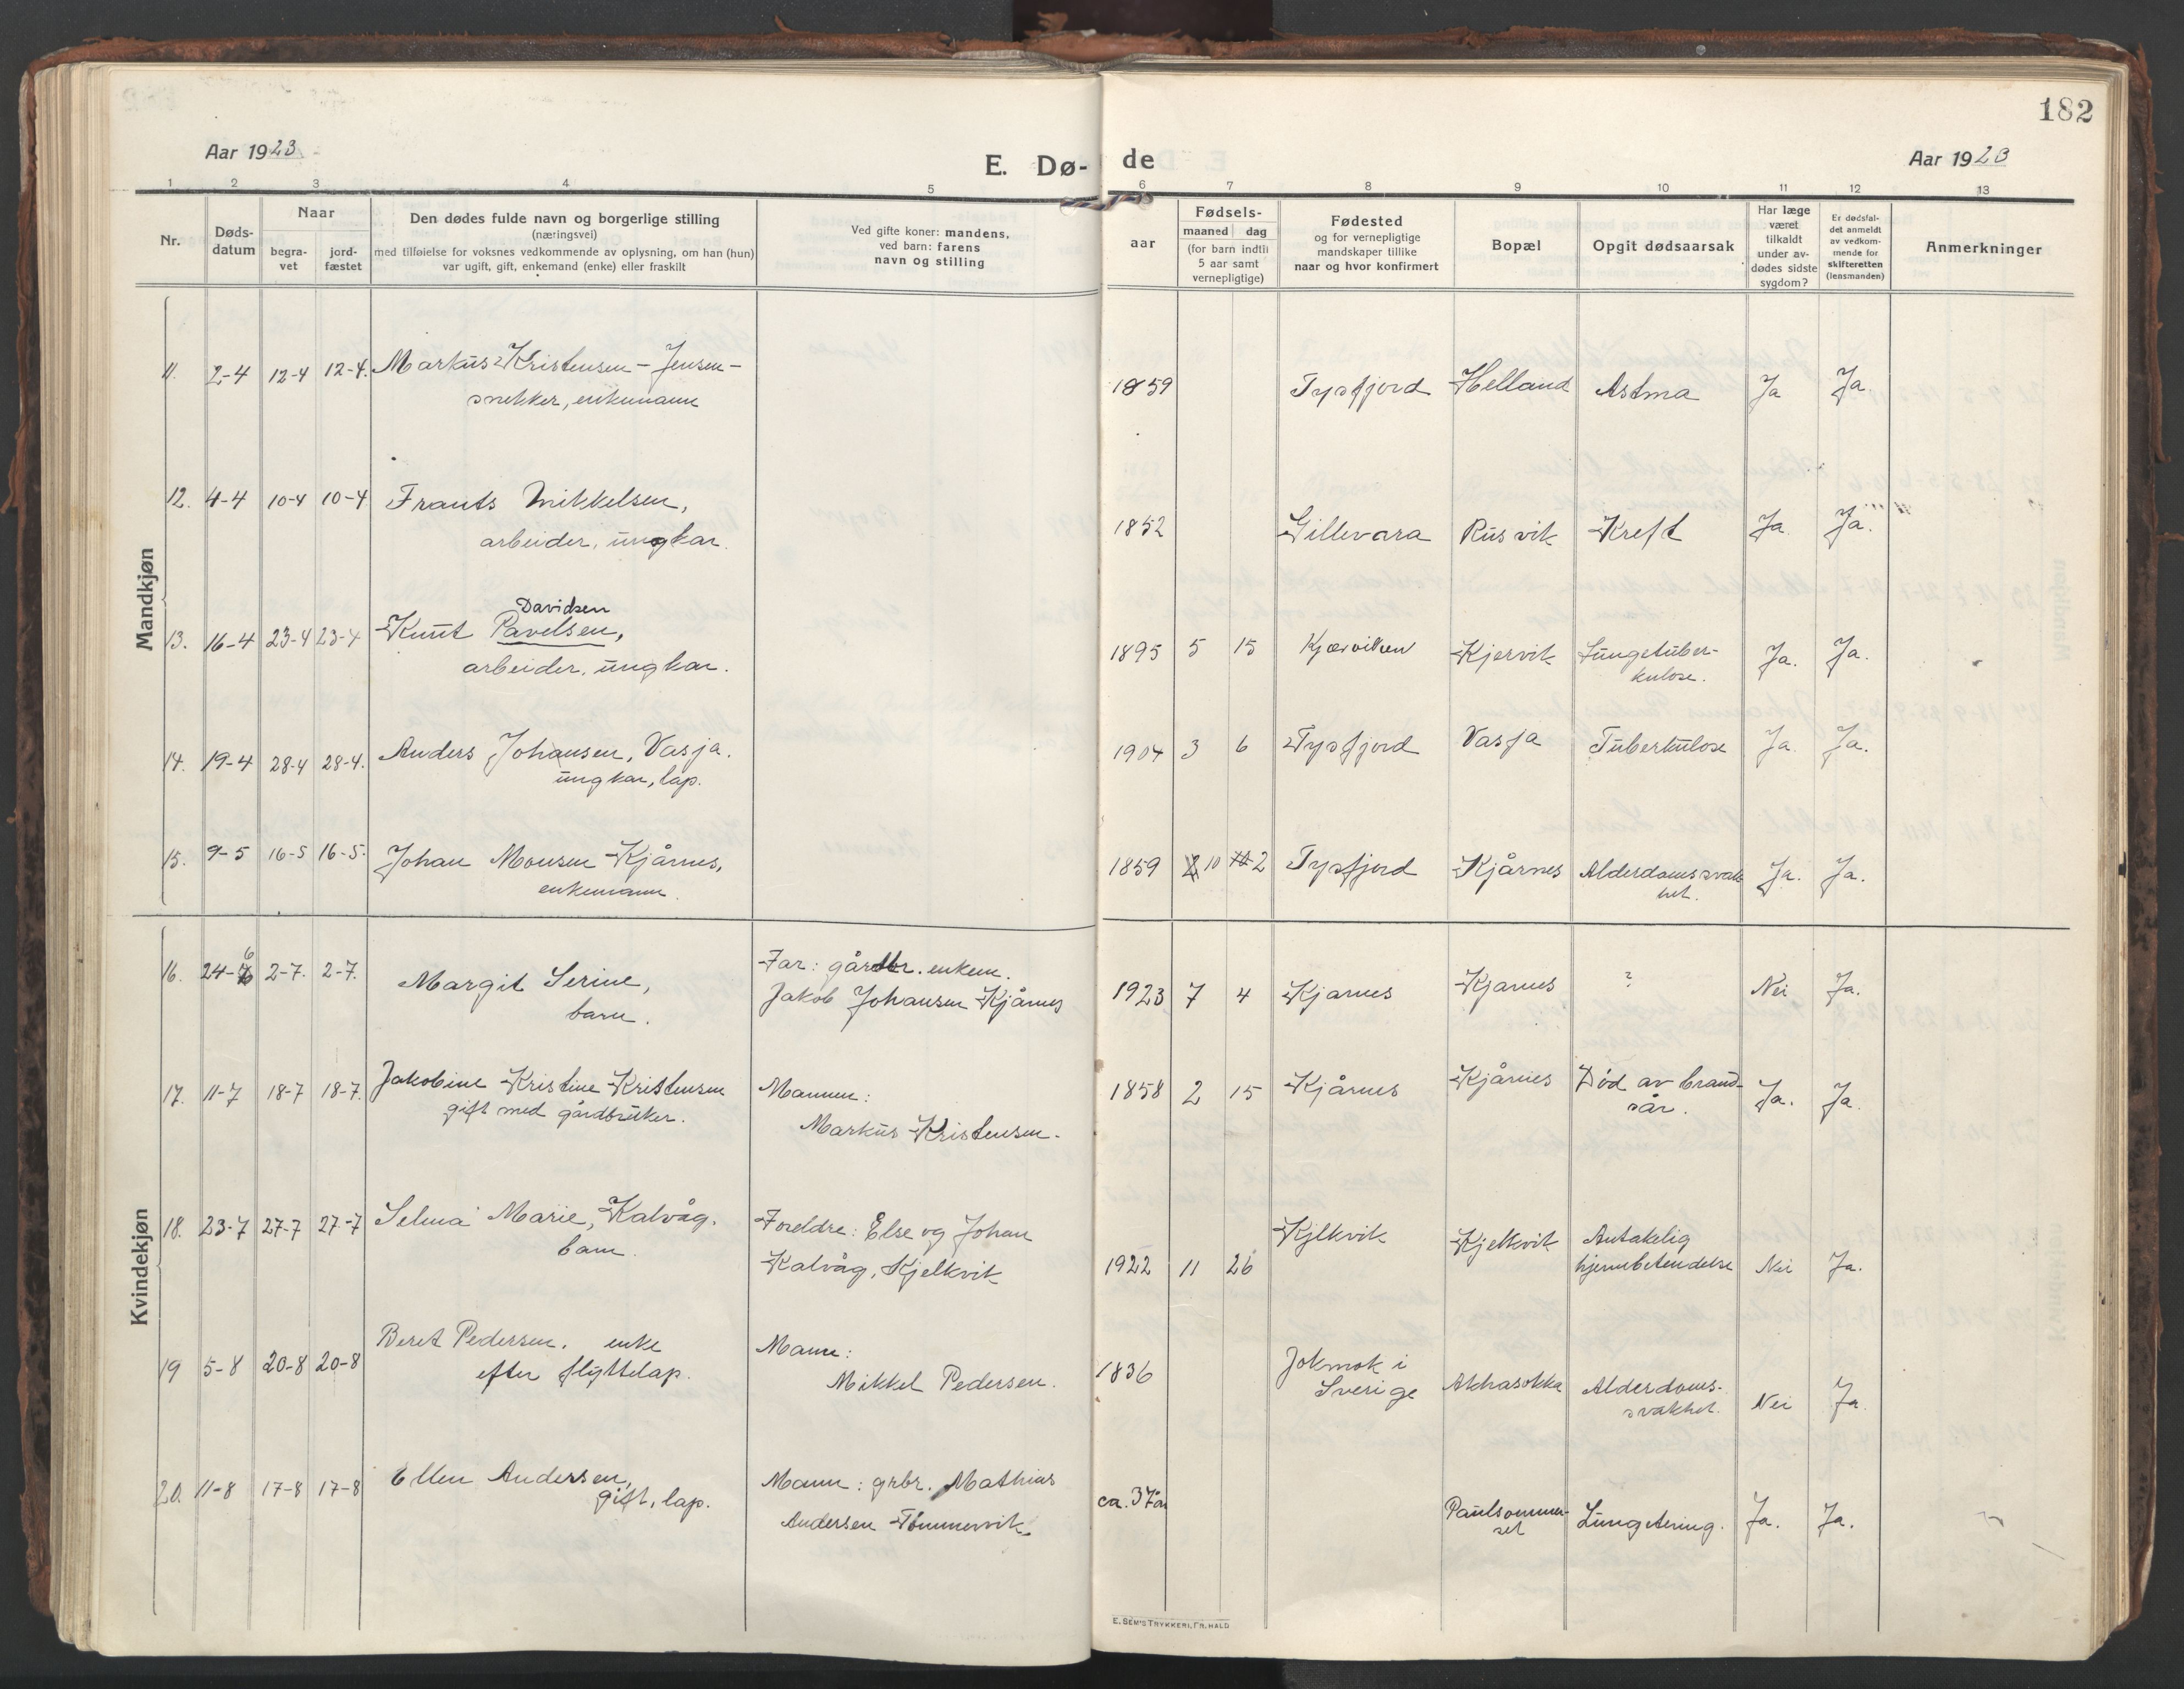 182
Aar 1923
E. Dø-
de
Aar 1923
1 2 3 4 5 6 7 8 9 10 11 12 13
Nr.
Døds-
datum
Naar
begra-
vet
jord-
fæstet
Den dødes fulde navn og borgerlige stilling
(næringsvei)
med tilføielse for voksnes vedkommende av oplysning, om han (hun)
var ugift, gift, enkemand (enke) eller fraskilt
Ved gifte koner: mandens,
ved barn: farens
navn og stilling
aar
Fødsels-
maaned dag
(for barn indtil
5 aar samt
vernepligtige)
Fødested
og for vernepligtige
mandskaper tillike
naar og hvor konfirmert
Bopæl
Opgit dødsaarsak
Har læge
været
tilkaldt
under av-
dødes sidste
sygdom?
Er dødsfal-
det anmeldt
av vedkom-
mende for
skifteretten
(lensmanden)
Anmerkninger
Mandkjøn
11. 2-4 12-4 12-4. Markus Kristensen - Jensen - 1859 Tysfjord Helland Astma Ja Ja.
snekker, enkemann
12. 4-4 10-4 10-4 Frants Mikkelsen, 1852 Gillevara Rusvik Kreft Ja Ja.
arbeider, ungkar.
Davidsen
13. 16-4 23-4 23-4 Knut Pavelsen, 1895 5 15 Kjærviken Kjervik Lungetuber-
arbeider, ungkar. kulose. Ja. Ja.
14. 19-4 28-4 28-4. Anders Johansen, Vasja. 1904 3 6 Tysfjord Vasja Tuberkulose Ja. Ja.
ungkar, lap.
15. 9-5 16-5 16-5. Johan Monsen Kjårnes, 1859 10 2 Tysfjord Kjårnes Alderdomssvak
enkemann. het. Ja. Ja.
Kvindekjøn
16. 24-6 2-7. 2-7. Margit Serine, Far: gårdbr. enkem. 1923 7 4 Kjarnes Kjarnes ? Nei Ja.
barn. Jakob Johansen Kjårnes
17. 11-7 18-7 18-7. Jakobine Kristine Kristensen Mannen: 1858 2 15 Kjårnes Kjårnes Død av brand-
gift med gårdbruker. Markus Kristensen. sår. Ja. Ja.
18. 23-7 27-7 27-7 Selma Marie, Kalvåg. Foreldre: Else og Johan Kjelkvik Kjelkvik Antakelig
barn. Kalvåg, Kjelkvik 1922 11 26 hjernebetendelse Nei Ja.
19 5-8 20-8 20-8 Beret Pedersen. enke Mann: 1836 Jokmok i Akkasokka Alderdoms-
efter flyttelap. Mikkel Pedersen. Sverige svakhet. Nei Ja.
20. 11-8 17-8 17-8 Ellen Andersen, Mann: grbr. Mathias ca. 37 år Paulsommer- Lungetering. Ja. Ja.
gift, lap. Andersen Tømmervik. set
E. SEM'S TRYKKERI, FR. HALD